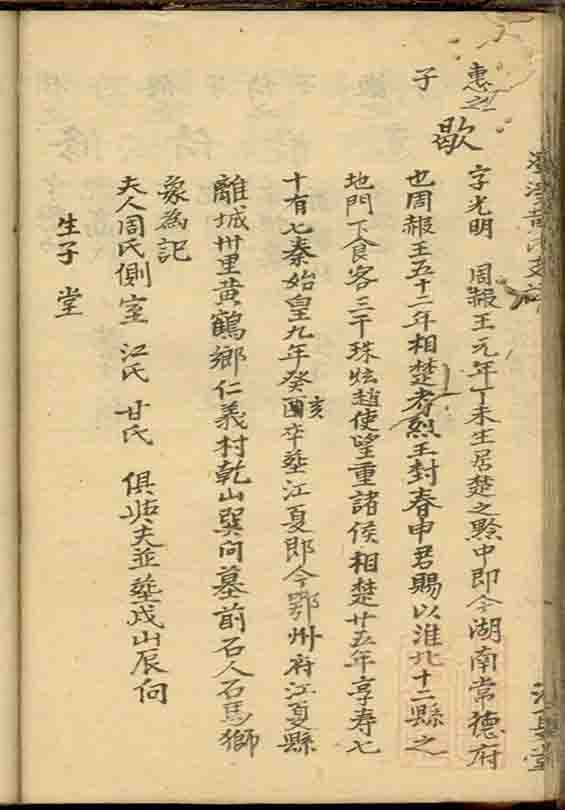 惠之
子
歇
字光明 周赧王元年丁未生居楚之黔中即今湖南常德府
也周赧王五十二年相楚考烈王封春申君賜以淮北十二縣之
地門下食客三千珠炫趙使望重諸侯相楚廿五年享寿七
十有七秦始皇九年癸酉亥卒塟江夏即今鄂州府江夏縣
離城卅里黄鶴鄉仁義村乾山巽向墓前石人石馬獅
象為記
夫人周氏側室江氏 甘氏 俱 夫並塟戌山辰向
生子 堂